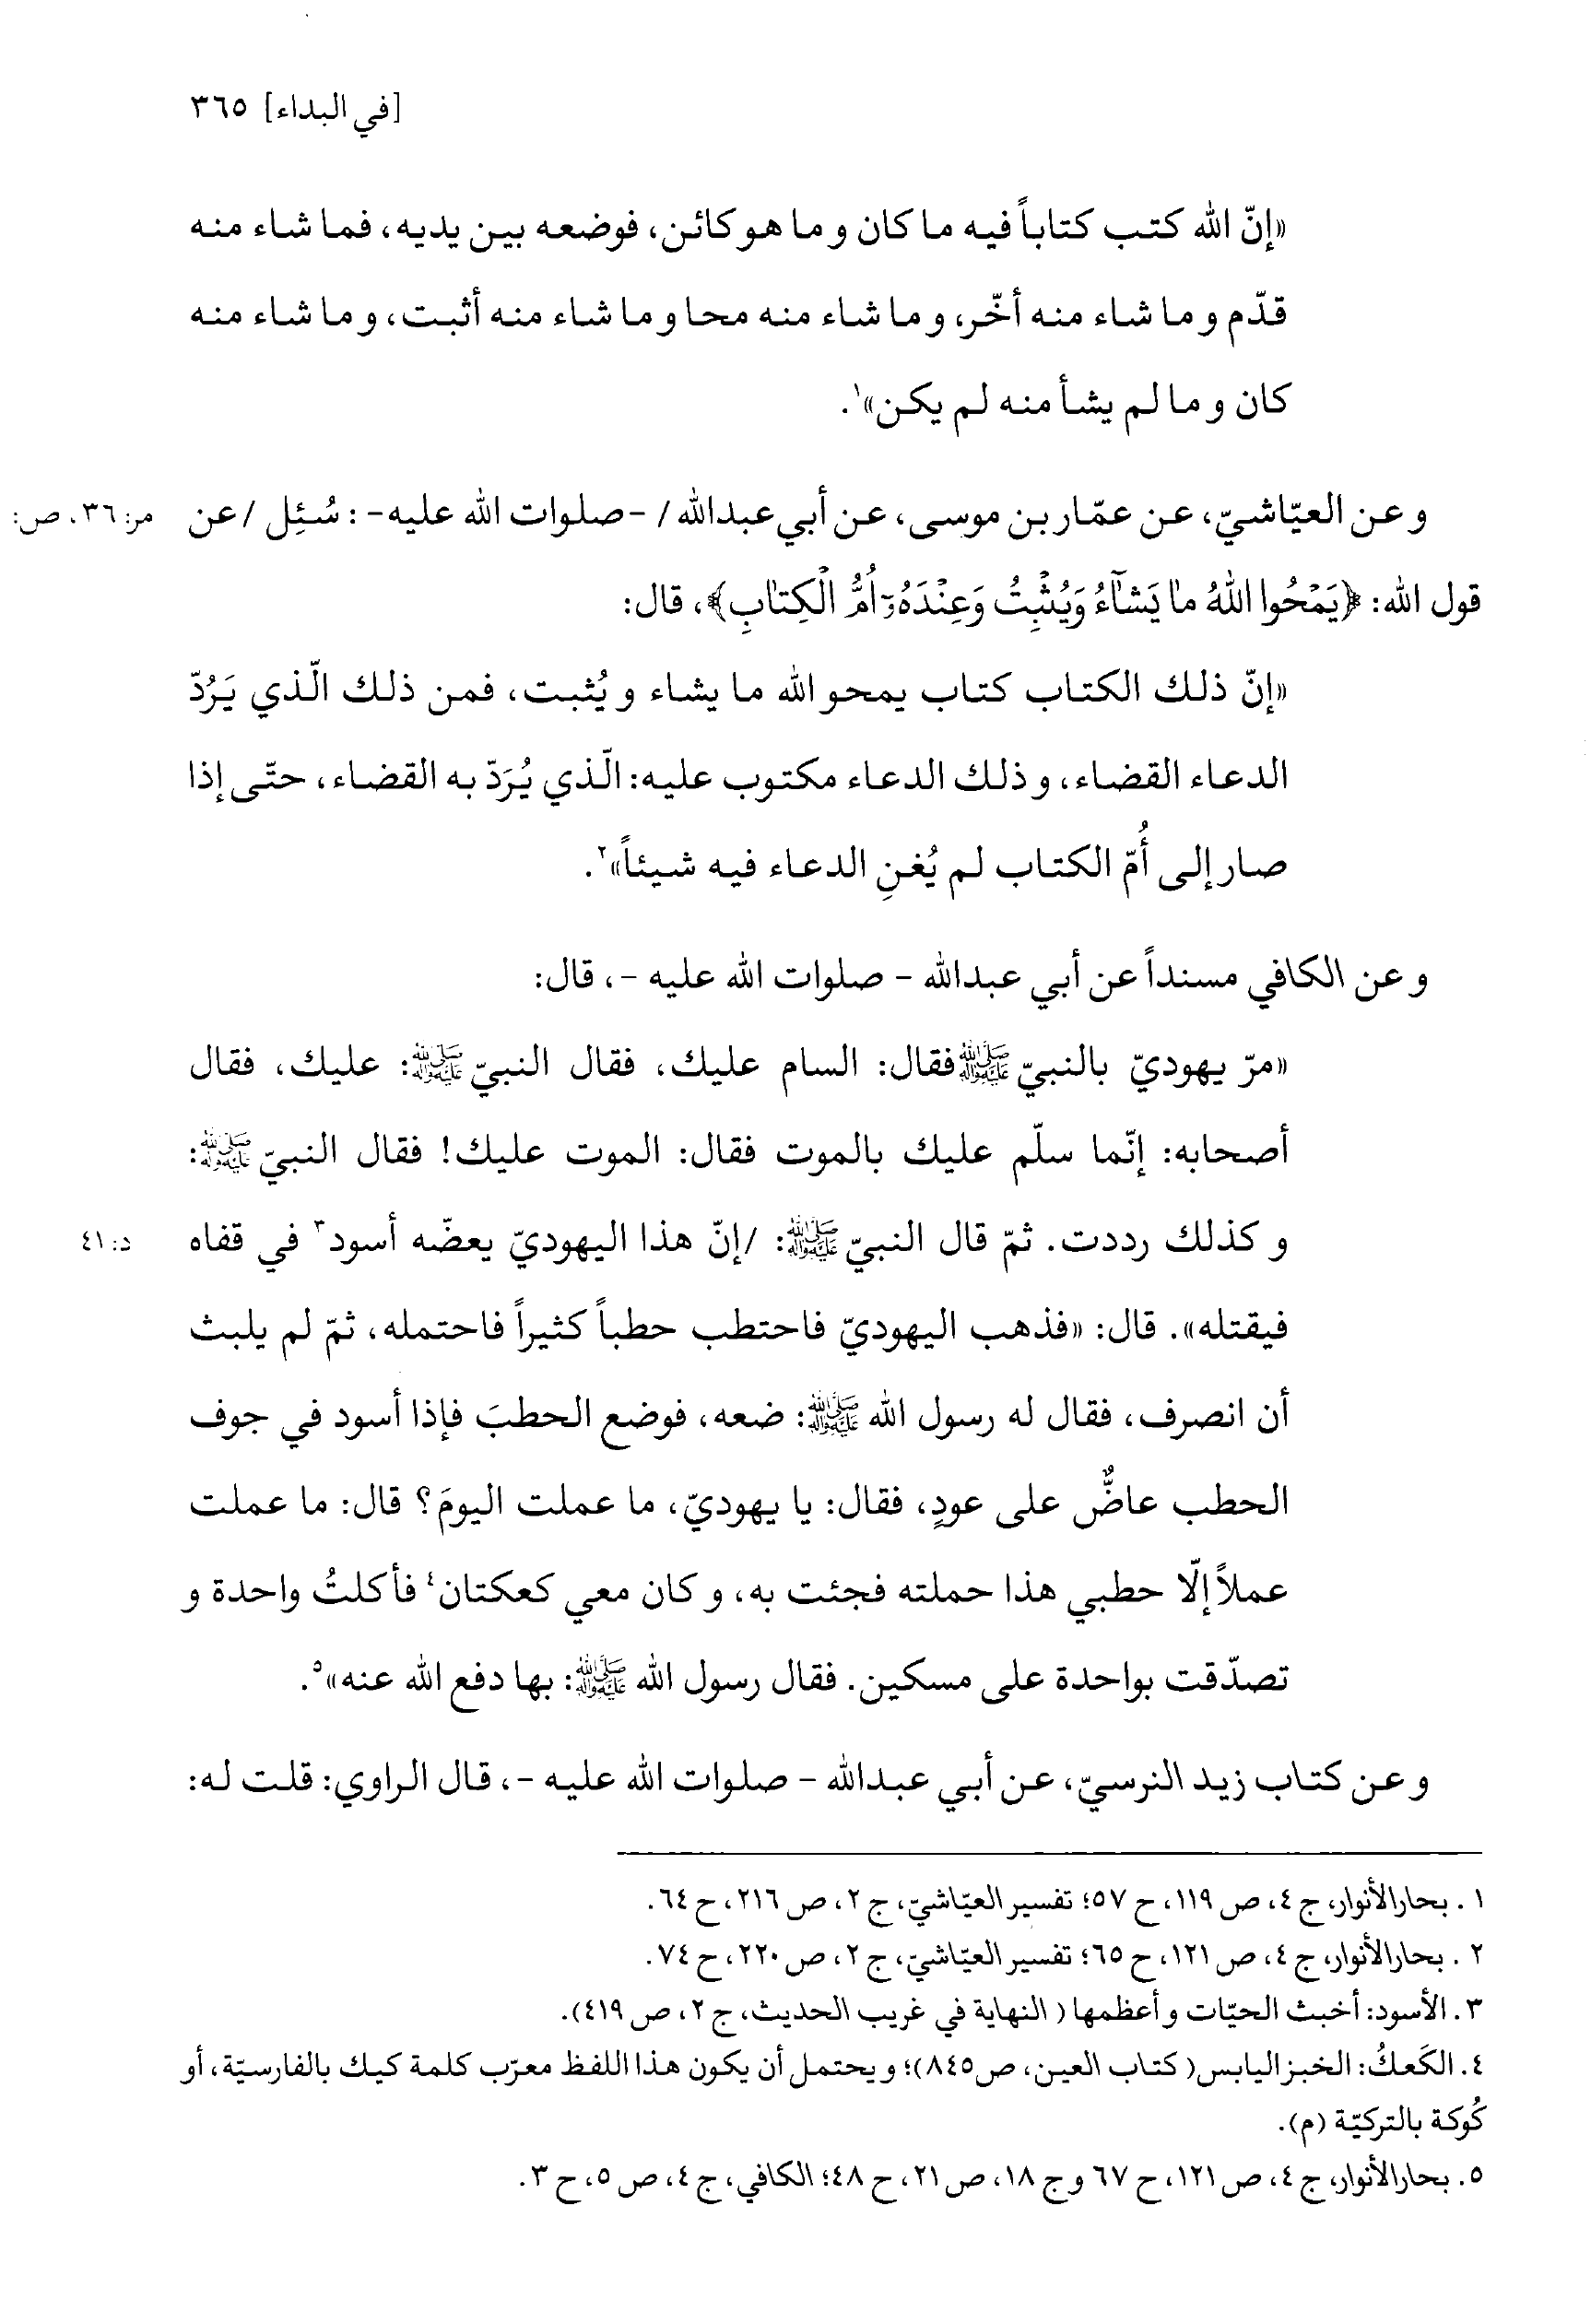 [في البداء] ٣٦٥
«إنّ الله كتب كتاباً فيه ما كان و ما هو كائن، فوضعه بين يديه، فما شاء منه
قدّم و ما شاء منه أخّر، و ما شاء منه محا و ما شاء منه أثبت، و ما شاء منه
كان و ما لم يشأ منه لم يكن»١.
و عن العيّاشيّ، عن عمّار بن موسى، عن أبي عبدالله / -صلوات الله عليه- : سُئِل /عن
مر: ٣٦، ص:
قول الله: ﴿يَمْحُوا اللهُ مٰا يَشٰآءُ وَيُثْبِتُ وَعِنْدَهُۥٓ أُمُّ الْكِتٰابِ﴾، قال:
«إنّ ذلك الكتاب كتاب يمحو الله ما يشاء و يُثبت، فمن ذلك الّذي يَرُدّ
الدعاء القضاء، و ذلك الدعاء مكتوب عليه: الّذي يُرَدّ به القضاء، حتّى إذا
صار إلى أُمّ الكتاب لم يُغنِ الدعاء فيه شيئاً»٢.
و عن الكافي مسنداً عن أبي عبدالله - صلوات الله عليه -، قال:
«مرّ يهوديّ بالنبيّ ﷺ فقال: السام عليك، فقال النبيّ ﷺ: عليك، فقال
أصحابه: إنّما سلّم عليك بالموت فقال: الموت عليك! فقال النبيّ ﷺ:
و كذلك رددت. ثمّ قال النبيّ ﷺ: /إنّ هذا اليهوديّ يعضّه أسود٣ في قفاه
د: ٤١
فيقتله». قال: «فذهب اليهوديّ فاحتطب حطباً كثيراً فاحتمله، ثمّ لم يلبث
أن انصرف، فقال له رسول الله ﷺ: ضعه، فوضع الحطبَ فإذا أسود في جوف
الحطب عاضٌّ على عودٍ، فقال: يا يهوديّ، ما عملت اليومَ؟ قال: ما عملت
عملاً إلّا حطبي هذا حملته فجئت به، و كان معي كعكتان٤ فأكلتُ واحدة و
تصدّقت بواحدة على مسكين. فقال رسول الله ﷺ: بها دفع الله عنه»٥.
و عن كتاب زيد النرسيّ، عن أبي عبدالله - صلوات الله عليه -، قال الراوي: قلت له:
١ . بحارالأنوار، ج ٤، ص ١١٩، ح ٥٧؛ تفسير العيّاشيّ، ج ٢، ص ٢١٦، ح ٦٤.
٢ . بحارالأنوار، ج ٤، ص ١٢١، ح ٦٥؛ تفسير العيّاشيّ، ج ٢، ص ٢٢٠، ح ٧٤.
٣ . الأسود: أخبث الحيّات و أعظمها ( النهاية في غريب الحديث، ج ٢، ص ٤١٩).
٤ . الكَعكُ: الخبز اليابس( كتاب العين، ص٨٤٥)؛ و يحتمل أن يكون هذا اللفظ معرّب كلمة كيك بالفارسيّة، أو
كُوكة بالتركيّة (م).
٥ . بحارالأنوار، ج ٤، ص ١٢١، ح ٦٧ و ج ١٨، ص ٢١، ح ٤٨؛ الكافي، ج ٤، ص ٥، ح ٣.